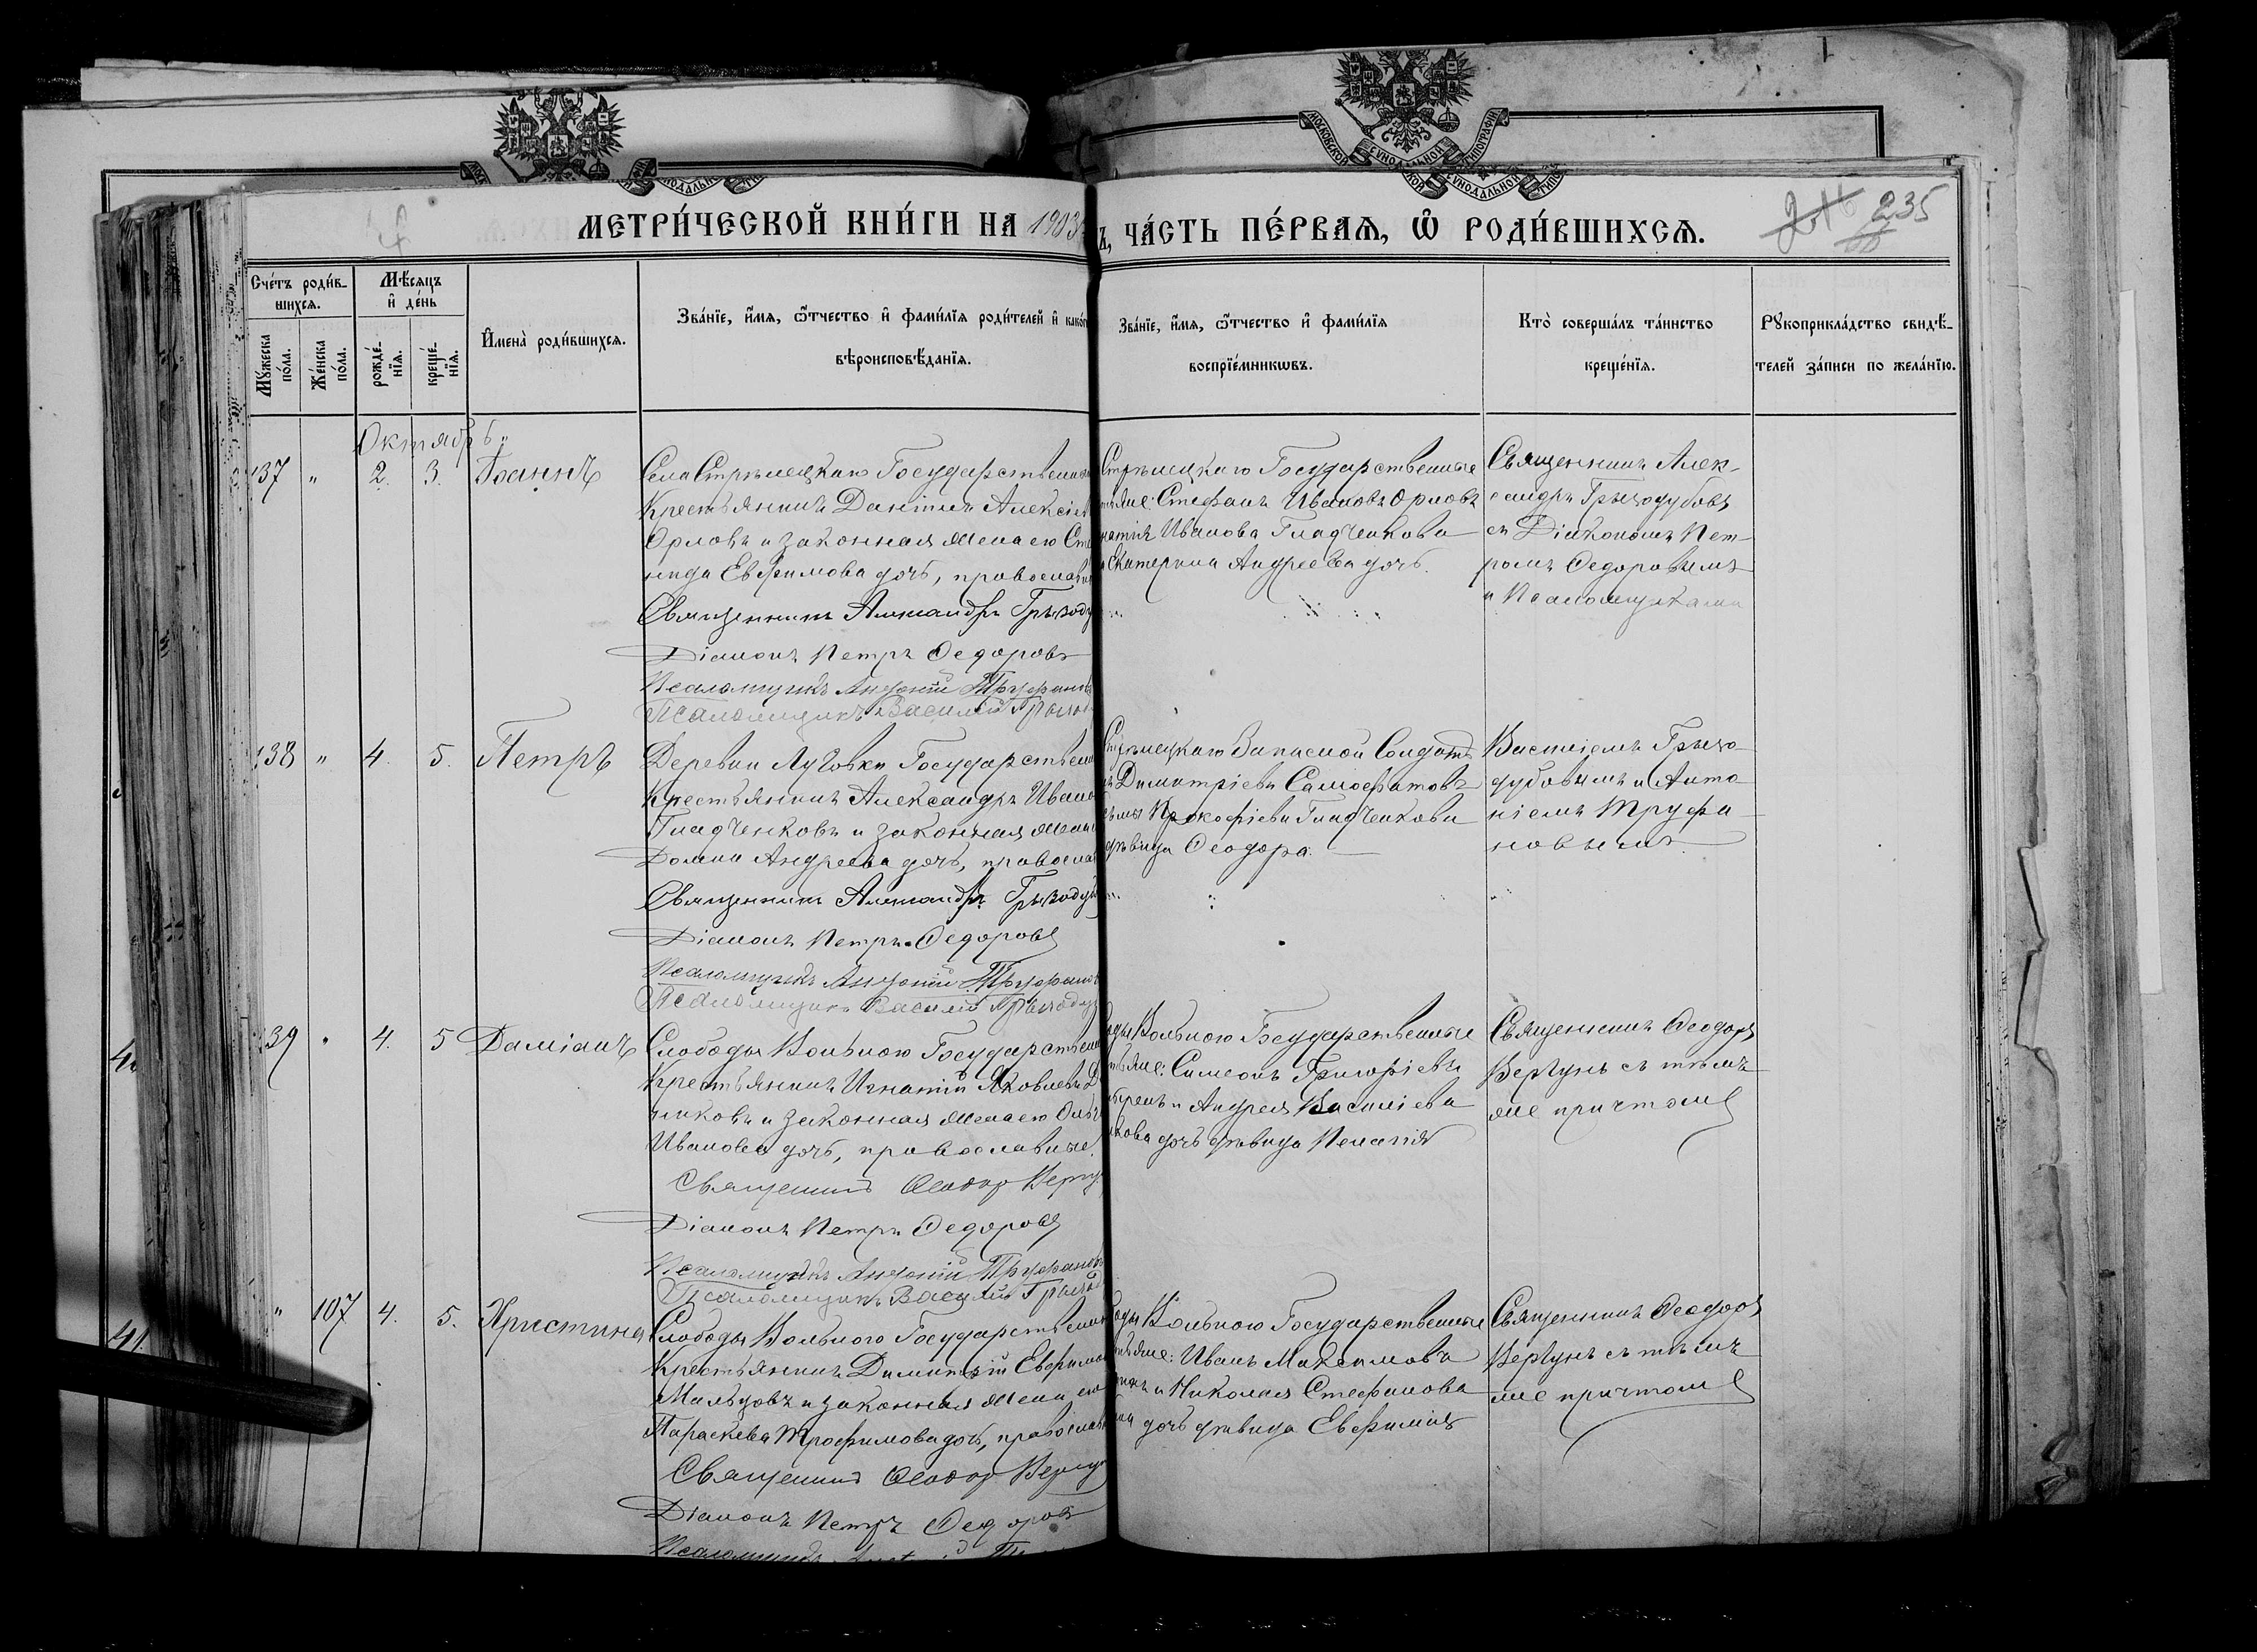 МОСКОВСКОЙ СѴНОДАЛЬНОЙ ТИПОГРАФІИ
МЕТРИ́ЧЕСКОЙ КНИ́ГИ НА 1903
Ъ, ЧА́СТЬ ПЕ́РВАѦ, Ѡ҆ РОДИ́ВШИХСѦ.
235
Сче́тъ роди́в-
шихсѧ.
Мѣ́сѧцъ
и҆ де́нь
Мꙋ́жеска
по́ла.
Же́нска
по́ла.
рожде́-
нїѧ.
креще́-
нїѧ.
И҆мена̀ роди́вшихсѧ.
Зва́нїе, и҆́мѧ, ѻ҆́тчество и҆ фами́лїѧ роди́телей и҆
вѣроисповѣ́данїѧ.
Зва́нїе, и҆́мѧ, ѻ҆́тчество и҆ фами́лїѧ
воспрїе́мникѡвъ.
Кто̀ соверша́лъ та́инство
креще́нїѧ.
Рꙋкоприкла́дство свидѣ́-
телей за́писи по жела́нїю.
Октябрь
137 " 2. 3. Іоаннъ
Села Стрѣлецкаго Государственный
Крестьянинъ Алексіев
Орловъ и законная жена его
Евфимова дочь, православн
Священникъ Александръ Грызоду
Діаконъ Петръ Ѳедоровъ
Псаломщикъ Антоній Труфановъ
Псаломщикъ Василій Грызод
Стрѣлецкаго Государственные
Стефанъ Ивановъ Орловъ
Иванова Гладченкова
Екатерина Андреева дочь.
Священникъ Алек-
сандръ Грызодубовъ
съ Діакономъ Пет-
ромъ Ѳедоровымъ
и Псаломщиками
138 " 4. 5. Петръ
Деревни Луговки Государствен
Крестьянинъ Александръ Ивано
Гладченковъ и законная жена
Домна Андреева дочь, православ
Священникъ Александръ Грызоду
Діаконъ Петръ Ѳедоровъ
Псаломщикъ Антоній Труфанов
Псаломщикъ Василій Грызоду
Стрѣлецкаго Запасной Солдатъ
Димитріевъ Самоѳатовъ
Прокофіева Гладченкова
дѣвица Ѳеодора.
Василіемъ Грызо-
дубовымъ и Анто-
ніемъ Труфа-
новымъ.
139 " 4. 5 Даміанъ
Слободы Вольною Государствен
Крестьянинъ Игнатій Яковлевъ
никовъ и законная жена его
Иванова дочь, православные.
Священникъ Ѳеодоръ Верг
Діаконъ Петръ Ѳедоровъ
Псаломщикъ Антоній Труфанов
Псаломщикъ Василій Грызод
Вольною Государственные
Симеонъ Григоріевъ
и Андрея Василіева
дочь дѣвица Пелагія
Священникъ Ѳеодоръ
Вергунъ съ тѣмъ
же причтомъ
" 107 4. 5. Христина
Слободы Вольного Государствен
Крестьянинъ Димитрій Евфимов
Мальцовъ и законная жена его
Параскева Трофимова дочь, православ
Священникъ Ѳеодоръ Вергу
Діаконъ Петръ Ѳедоровъ
Вольною Государственные
Иванъ Максимовъ
и Николая Стефанова
дочь дѣвица Евфимія
Священникъ Ѳеодоръ
Вергунъ съ тѣмъ
же причтомъ